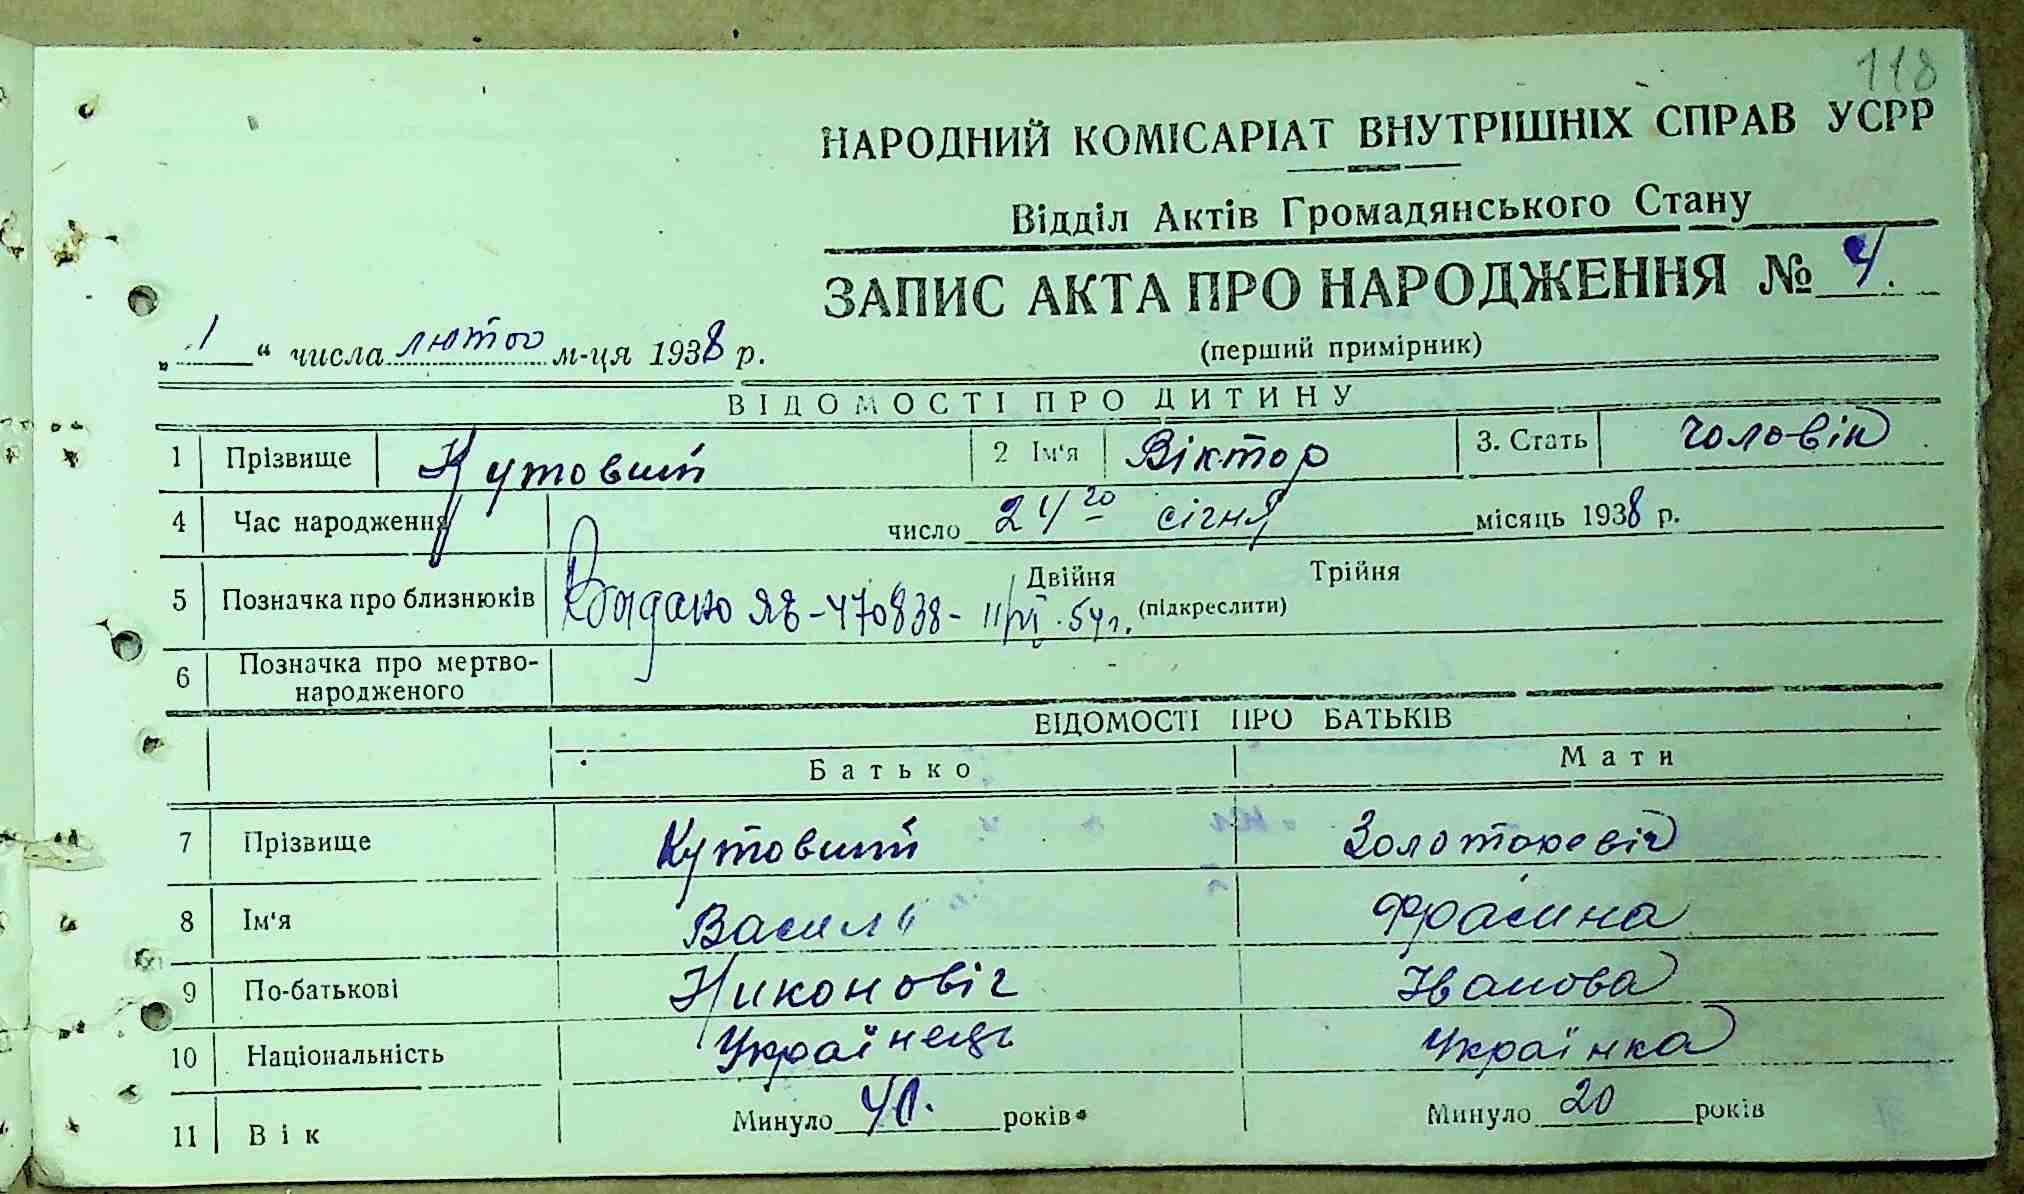 118
НАРОДНИЙ КОМІСАРІАТ ВНУТРІШНІХ СПРАВ УСРР
Відділ Актів Громадянського Стану
ЗАПИС АКТА ПРО НАРОДЖЕННЯ № 4.
„1“ числа лютого м-ця 1938 р.
(перший примірник)
ВІДОМОСТІ ПРО ДИТИНУ
1 Прізвище Кутовий 2 Ім'я Віктор 3. Стать чоловіч
4 Час народження число 24го січня місяць 1938 р.
5 Позначка про близнюків Двійня Трійня
(підкреслити)
Выдано ЯБ-470838- 11/VI.54г.
6 Позначка про мертво-
народженого
ВІДОМОСТІ ПРО БАТЬКІВ
Батько Мати
7 Прізвище Кутовий
8 Ім'я Василь Фрасина
9 По-батькові Никоновіч Іванова
10 Національність Українець Українка
11 Вік Минуло 40. років Минуло 20 років